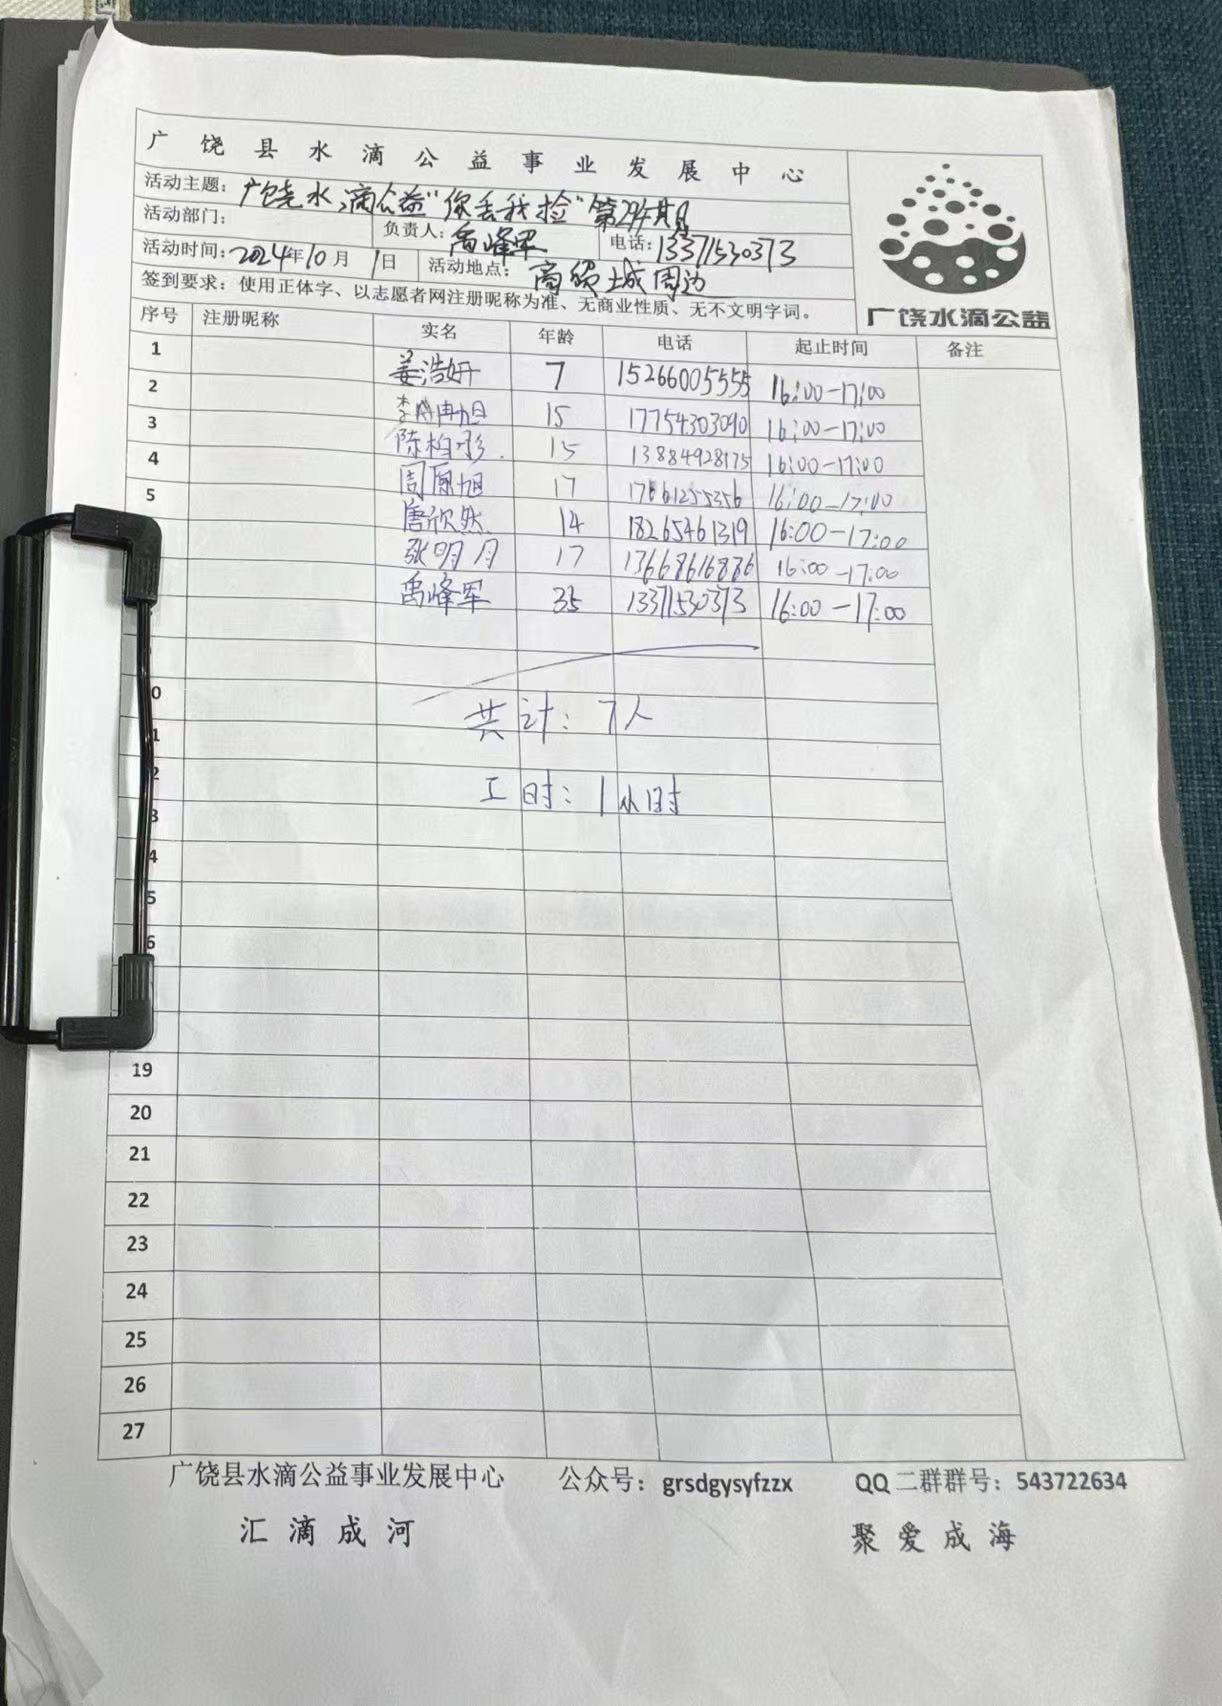 广饶县水滴公益事业发展中心
活动主题：广饶水滴公益"你丢我捡"第 期
活动部门： 负责人：禹峰军 电话：13371530373
活动时间：2024年10月1日 活动地点：商贸城周边
签到要求：使用正体字、以志愿者网注册昵称为准、无商业性质、无不文明字词。
广饶水滴公益
序号 注册昵称 实名 年龄 电话 起止时间 备注
1 姜浩妍 7 15266005555 16:00-17:00
2 李 冉旭 15 17754303090 16:00-17:00
3 陈柏彤 15 13884928175 16:00-17:00
4 周原旭 17 17661255356 16:00-17:00
5 唐欣然 14 18265461319 16:00-17:00
张明月 17 13668616886 16:00-17:00
禹峰军 35 13371530373 16:00-17:00
0
共计：7人
1
2
工时：1小时
3
4
5
6
19
20
21
22
23
24
25
26
27
广饶县水滴公益事业发展中心 公众号：grsdgysyfzzx QQ二群群号：543722634
汇滴成河 聚爱成海